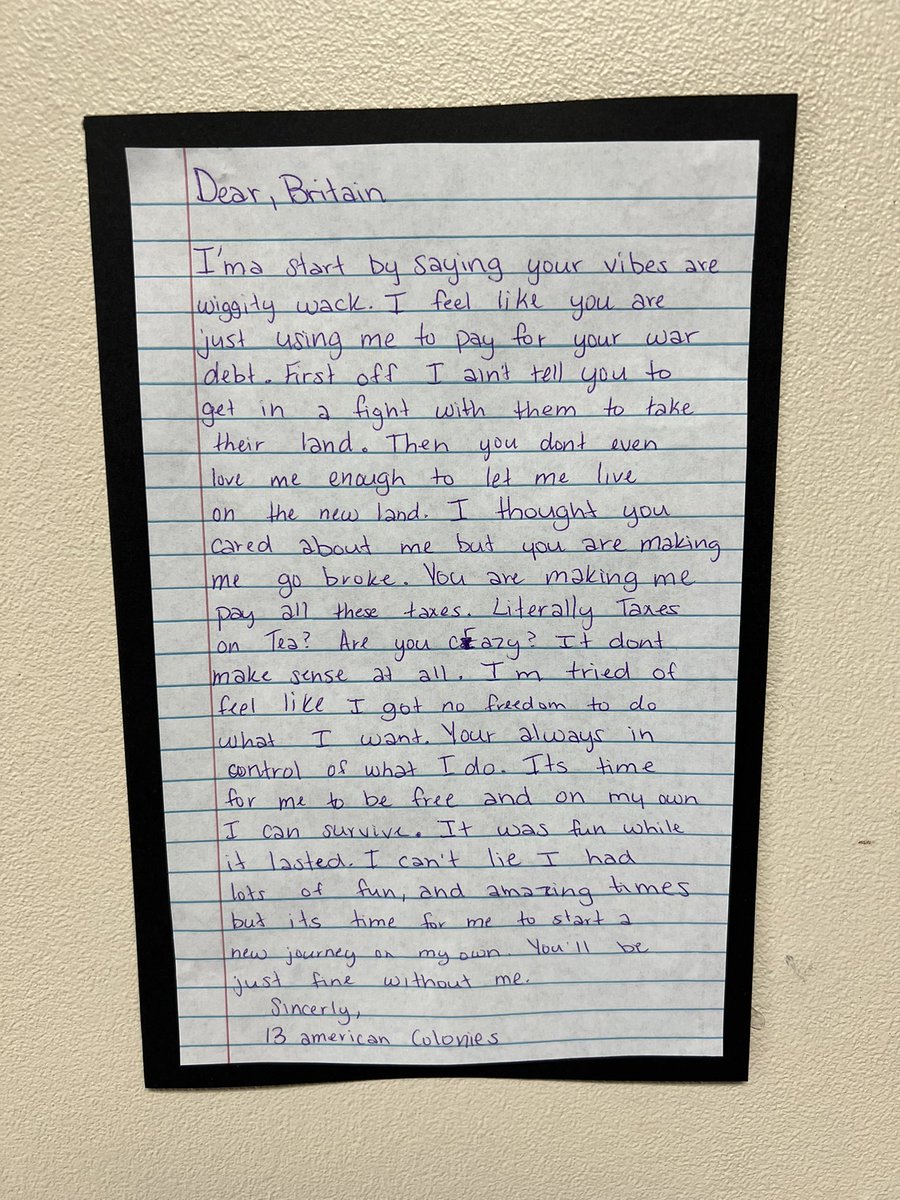 Dear, Britain
I'ma start by saying your vibes are
wiggity wack. I feel like you are
just using me to pay for your war
debt. First off I ain't tell you to
get in a fight with them to take
their land. Then you dont even
love me enough to let me live
on the new land. I thought you
cared about me but you are making
me go broke. You are making me
pay all these taxes. Literally Taxes
on Tea? Are you crazy? It dont
make sense at all. I'm tried of
feel like I got no freedom to do
what I want. Your always in
control of what I do. Its time
for me to be free and on my own
I can survive. It was fun while
it lasted. I can't lie I had
lots of fun, and amazing times
but its time for me to start a
new journey on my own. You'll be
just fine without me.
Sincerly,
13 american Colonies